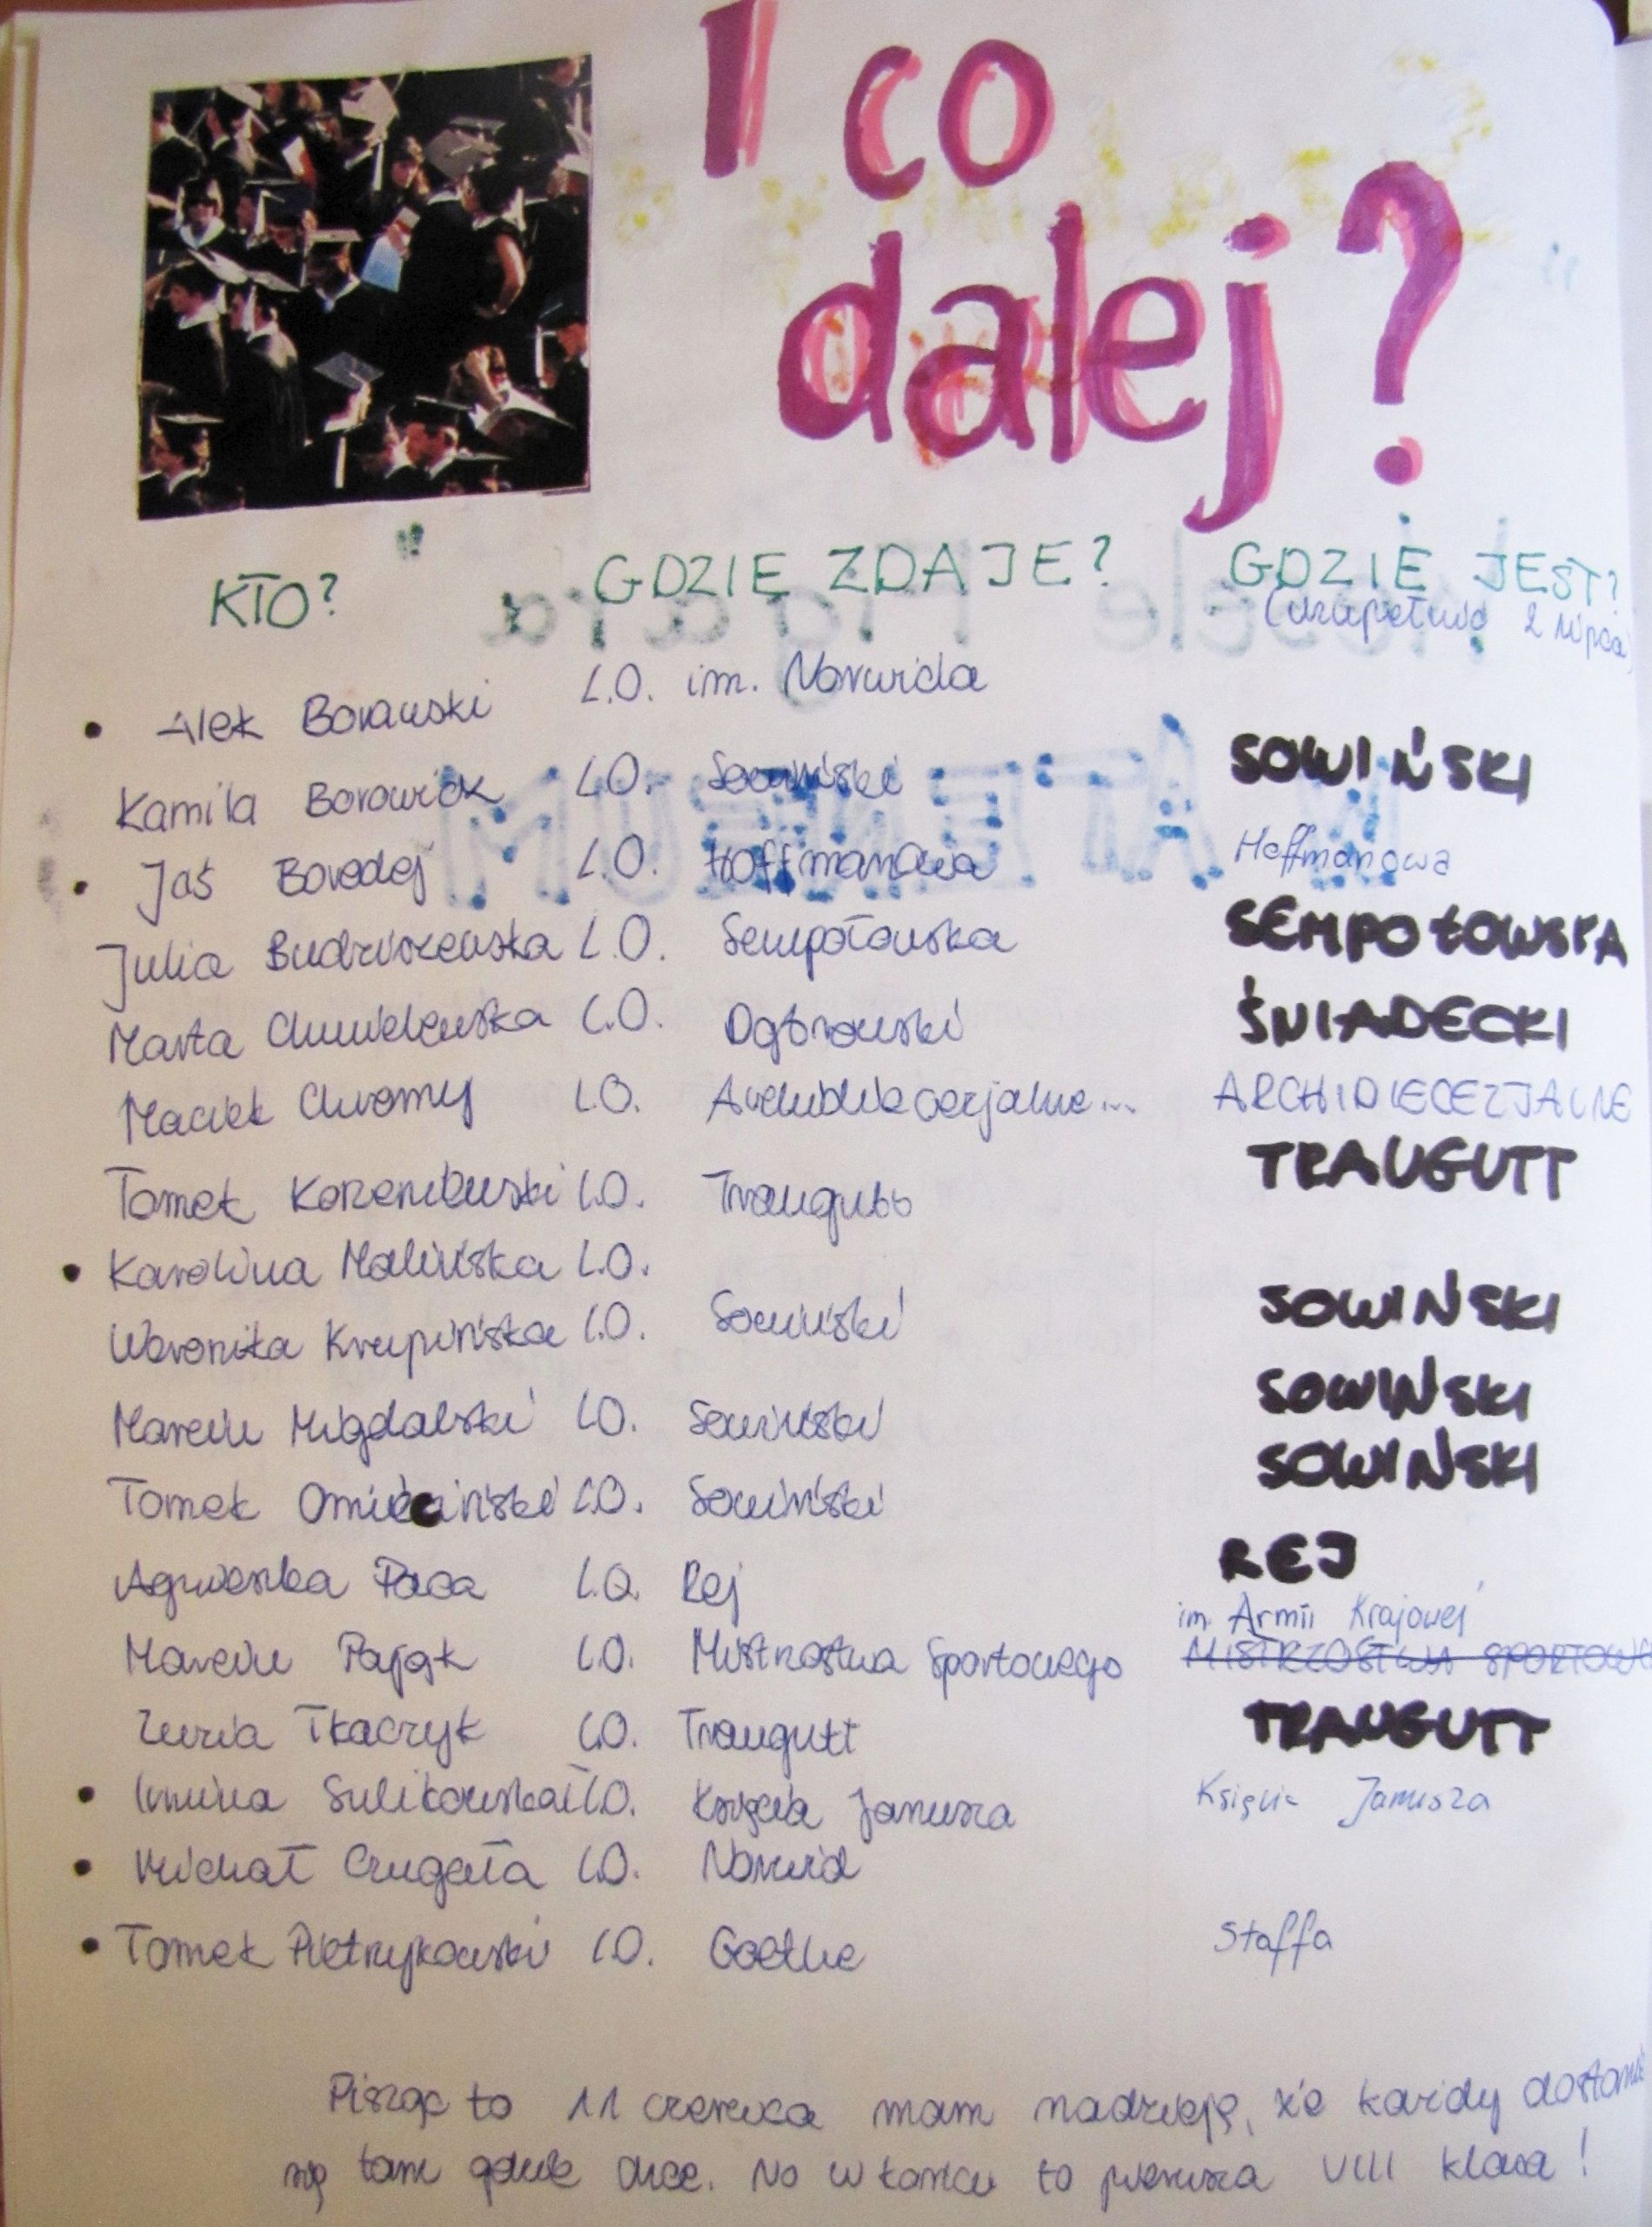 I co
dalej?
KTO? GDZIE ZDAJE? GDZIE JEST?
(uzupełnić 2 lipca)
• Alek Borawski L.O. im. Norwida
Kamila Borowick L.O. Sowiński SOWIŃSKI
• Jaś Boredej L.O. Hoffmanowa Hoffmanowa
Julia Budziszewska L.O. Sempołowska SEMPOŁOWSKA
Marta Chmielewska L.O. Dąbrowski ŚNIADECKI
Maciek Chromy L.O. Archidiecezjalne... ARCHIDIECEZJALNE
Tomek Korzeniewski L.O. Traugutt TRAUGUTT
• Karolina Malińska L.O.
Weronika Krupińska L.O. Sowiński SOWIŃSKI
Marcin Migdalski L.O. Sowiński SOWIŃSKI
Tomek Omieciński L.O. Sowiński SOWIŃSKI
Agnieszka Paca L.O. Rej REJ
im. Armii Krajowej
Marcin Pająk L.O. Mistrzostwa Sportowego MISTRZOSTWA SPORTOWE
Zuzia Tkaczyk L.O. Traugutt TRAUGUTT
• Sulikowska L.O. Księcia Janusza Księcia Janusza
• Michał Czugała L.O. Norwid
• Tomek Pietrzykowski L.O. Goethe Staffa
Pisząc to 11 czerwca mam nadzieję, że każdy dostanie
się tam gdzie chce. No w końcu to pierwsza VIII klasa!